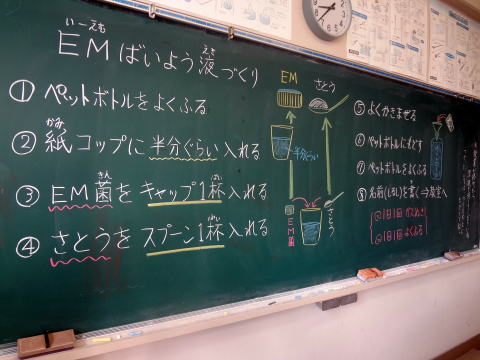 いーえむ
えき
EMばいよう液づくり
①ペットボトルをよくふる
かみ
②紙コップに半分ぐらい入れる
きん
ぱい
③EM菌をキャップ1杯入れる
ぱい
④さとうをスプーン1杯入れる
EM
さとう
半分ぐらい
EM菌
さとう
⑤よくかきまぜる
⑥ペットボトルにもどす
⑦ペットボトルをよくふる
⑧名前(しるし)を書く⇒教室へ
@1日1回 ガスぬき
@1日1回 よくふる